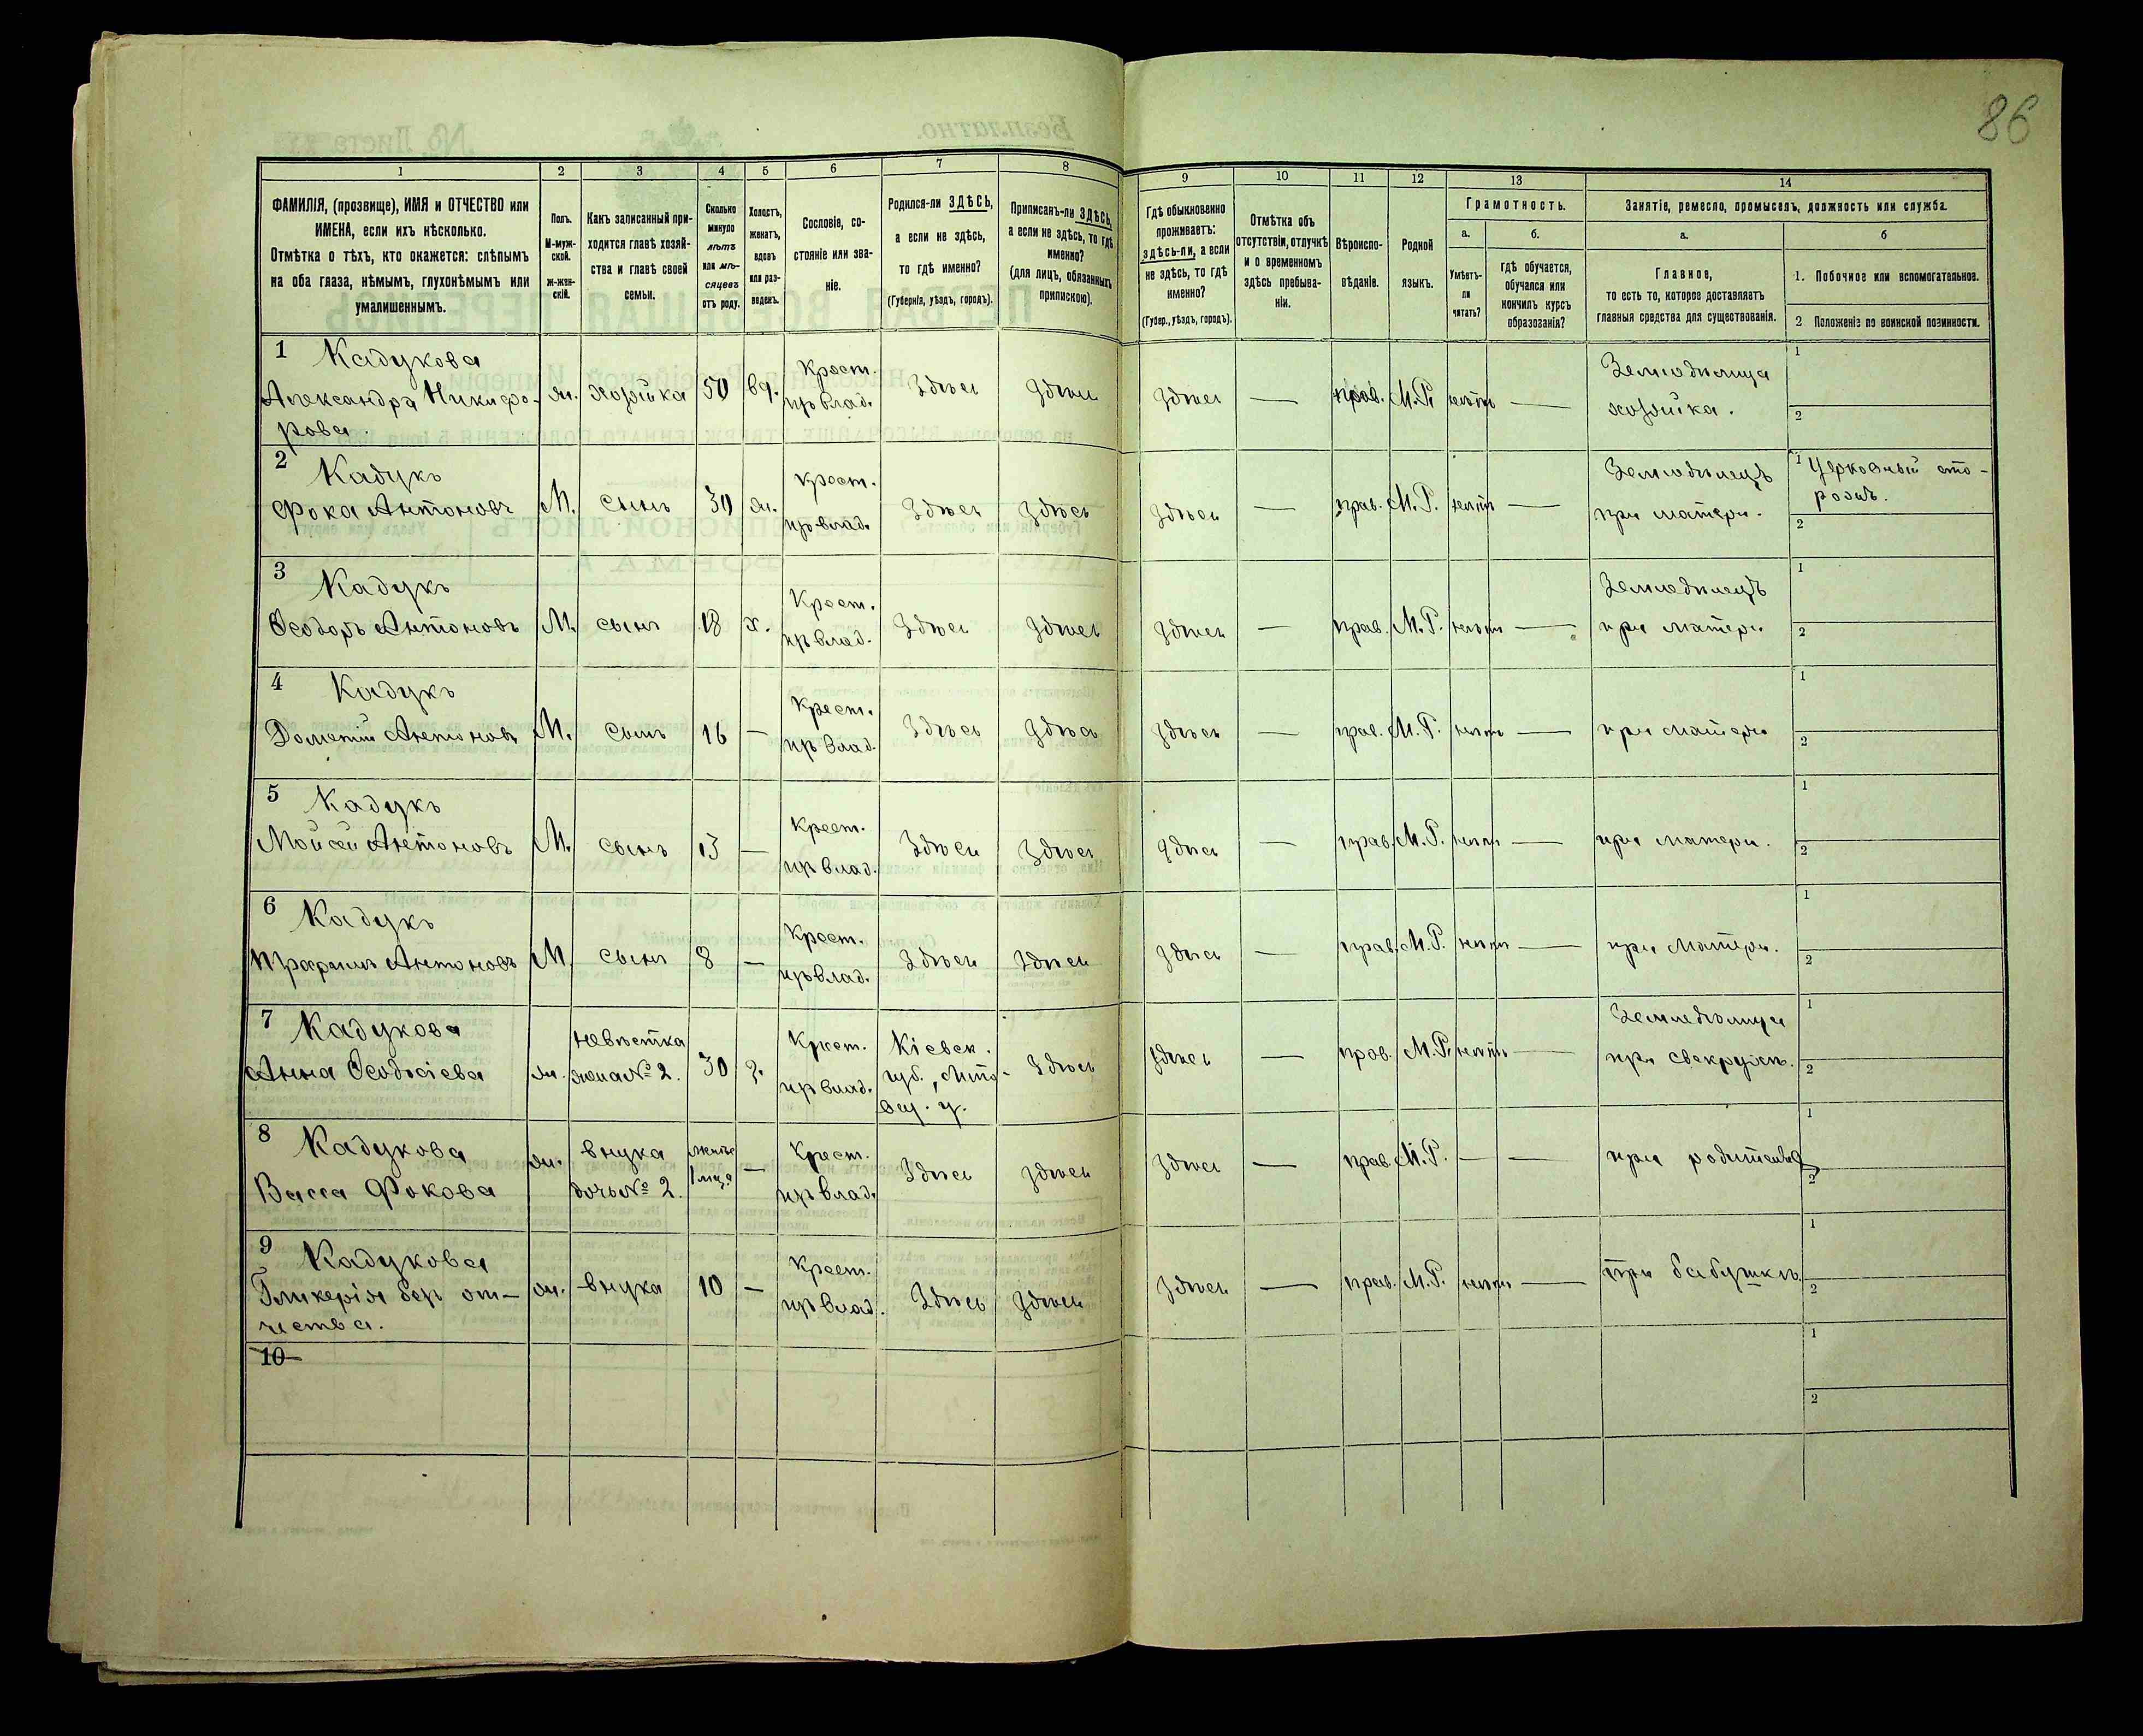 86
1 2 3 4 5 6 7 8 9 10 11 12 13 14
ФАМИЛІЯ, (прозвище), ИМЯ и ОТЧЕСТВО или
ИМЕНА, если ихъ нѣсколько.
Отмѣтка о тѣхъ, кто окажется: слѣпымъ
на оба глаза, нѣмымъ, глухонѣмымъ или
умалишеннымъ.
Полъ.
М-муж-
ской.
ж-жен-
скій.
Какъ записанный при-
ходится главѣ хозяй-
ства и главѣ своей
семьи.
Сколько
минуло
лѣтъ
или мѣ-
сяцевъ
отъ роду.
Холостъ,
женатъ,
вдовъ
или раз-
веденъ.
Сословіе, со-
стояніе или зва-
ніе.
Родился-ли ЗДѢСЬ,
а если не здѣсь,
то гдѣ именно?
(Губернія, уѣздъ, городъ).
Приписанъ-ли ЗДѢСЬ,
а если не здѣсь, то гдѣ
именно?
(для лицъ, обязанныхъ
припискою).
Гдѣ обыкновенно
проживаетъ:
здѣсь-ли, а если
не здѣсь, то гдѣ
именно?
(Губер., уѣздъ, городъ).
Отмѣтка объ
отсутствіи, отлучкѣ
и о временномъ
здѣсь пребыва-
ніи.
Вѣроиспо-
вѣданіе.
Родной
языкъ.
Грамотность.
а.
Умѣетъ-
ли
читать?
б.
гдѣ обучается,
обучался или
кончилъ курсъ
образованія?
Занятіе, ремесло, промыселъ, должность или служба.
а.
Главное,
то есть то, которое доставляетъ
главныя средства для существованія.
б
1. Побочное или вспомогательное.
2 Положеніе по воинской повинности.
1 Кадукова
Александра Никифо-
рова.
ж. хозяйка 50 вд. Крест. из влад. Здѣсь Здѣсь Здѣсь — прав. М.Р. нетъ — Земледѣлица хозяйка. 1 2
2 Кадукъ
Фока Антоновъ
М. сынъ 30 ж. Крест. из влад. Здѣсь Здѣсь Здѣсь — прав. М.Р. нетъ — Земледѣлецъ при матери. 1 Церковный сто-
рожъ.
2
3 Кадукъ
Ѳеодоръ Антоновъ
М. сынъ 18 х. Крест. из влад. Здѣсь Здѣсь Здѣсь — прав. М.Р. нетъ — Земледѣлецъ при матери 1 2
4 Кадукъ
Дометій Антоновъ
М. сынъ 16 — Крест. из влад. Здѣсь Здѣсь Здѣсь — прав. М.Р. нетъ — при матери 1 2
5 Кадукъ
Мойсей Антоновъ
М. сынъ — Крест. из влад. Здѣсь Здѣсь Здѣсь — прав. М.Р. нетъ — при матери. 1 2
6 Кадукъ
Антоновъ
М. сынъ 8 — Крест. из влад. Здѣсь Здѣсь Здѣсь — прав. М.Р. нетъ — при матери. 1 2
7 Кадукова
Анна Ѳеодосіева
ж. невѣстка жена № 2. 30 з. Крест. из влад. Кіевск. губ., Здѣсь Здѣсь — прав. М.Р. нетъ — Земледѣлица при свекрухѣ. 1 2
8 Кадукова
Васса Фокова
ж. внука дочь № 2. — Крест. из влад. Здѣсь Здѣсь Здѣсь — прав. М.Р. — — при родителяхъ 1 2
9 Кадукова
Гликерія безъ от-
чества.
ж. внука 10 — Крест. из влад. Здѣсь Здѣсь Здѣсь — прав. М.Р. нетъ — при бабушкѣ. 1 2
10 1 2